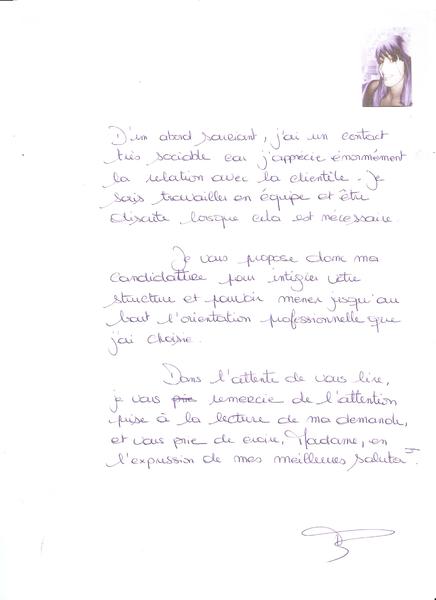 D'un abord souriant, j'ai un contact
très sociable car j'apprécie énormément
la relation avec la clientèle. Je
sais travailler en équipe et être
discrète lorsque cela est nécessaire.
Je vous propose donc ma
candidature pour intégrer votre
structure et pouvoir mener jusqu'au
bout l'orientation professionnelle que
j'ai choisie.
Dans l'attente de vous lire,
je vous prie remercie de l'attention
prise à la lecture de ma demande,
et vous prie de croire, Madame, en
l'expression de mes meilleures salutat°